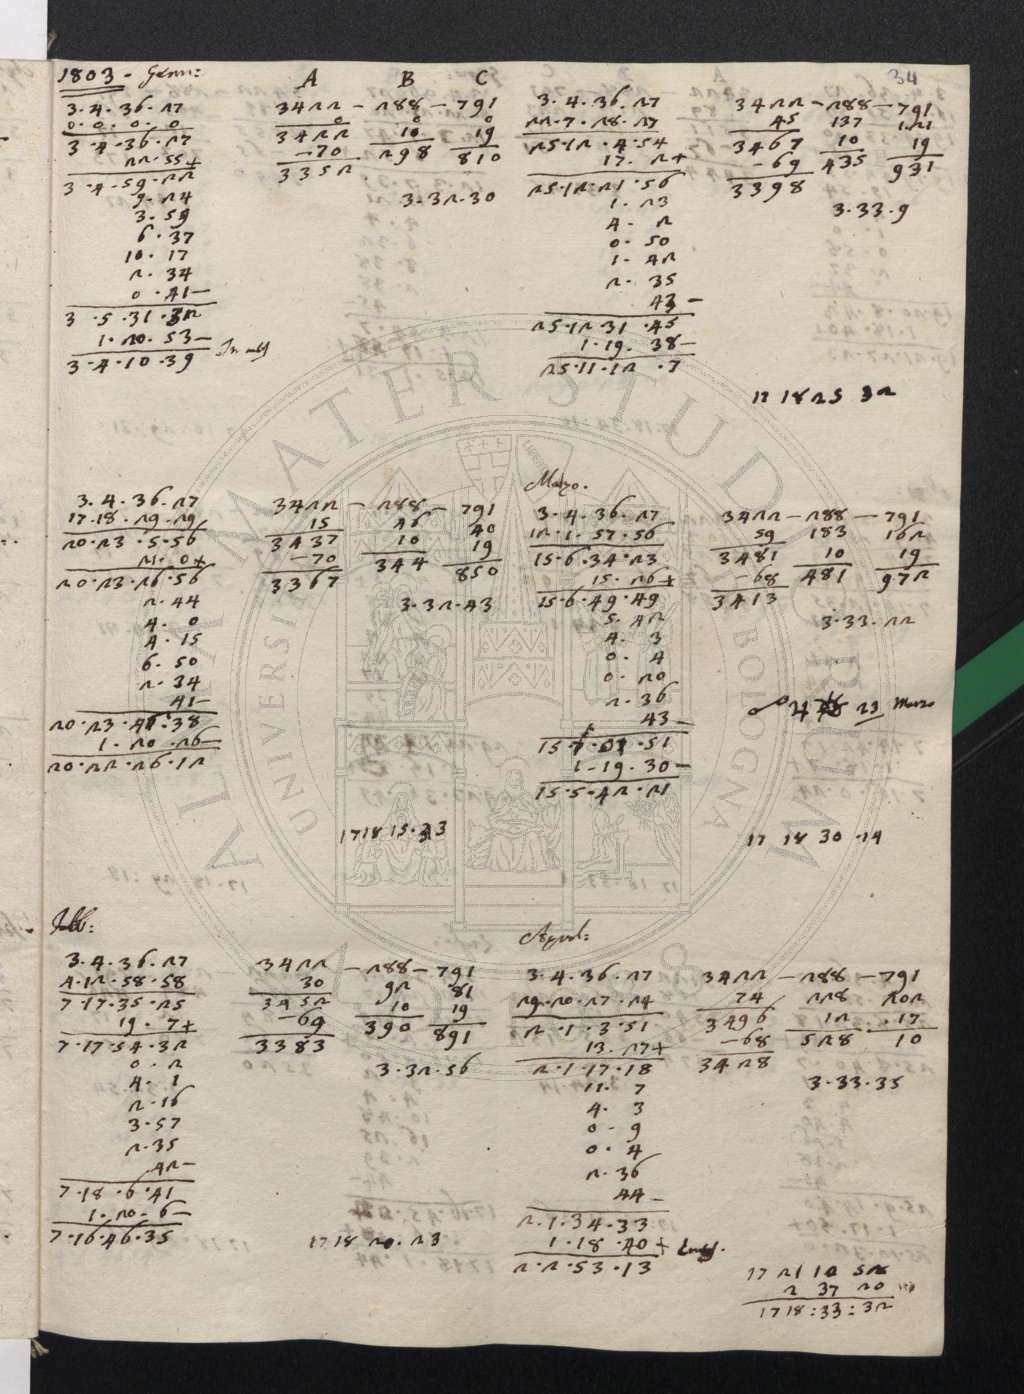 34
1803 - Genn:
3.4.36.27
0.0.0.0
3.4.36.27
22.55+
3.4.59.22
9.24
3.59
6.37
10.17
2.34
0.41—
3.5.31.32
1.20.53—
3.4.10.39
A B C
3422 — 288 — 791
0 0 0
3422 10 19
—70 298 810
3352
3.32.30
3.4.36.27
22.7.28.27
25.12.4.54
17.2+
25.12.21.56
1.23
4.2
0.50
1.42
2.35
43—
25.12.31.45
1.19.38—
25.11.12.7
3422 — 288 — 791
45 137 121
3467 10 19
—69 435 931
3398
3.33.9
17 18 25 32
3.4.36.27
17.18.29.29
20.23.5.56
21.0+
20.23.26.56
2.44
4.0
4.15
6.50
2.34
41—
20.23.46.38
1.20.26—
20.22.26.12
3422 — 288 — 791
15 46 40
3437 10 19
—70 344 850
3367
3.32.43
17 18 15.33
Marzo.
3.4.36.27
12.1.57.56
15.6.34.23
15.26+
15.6.49.49
5.42
4.3
0.4
0.20
2.36
43—
15.7.01.51
1.19.30—
15.5.42.21
3422 — 288 — 791
59 183 162
3481 10 19
—68 481 972
3413
3.33.22
23 Marzo
17 18 30.14
Febb:
3.4.36.27
4.12.58.58
7.17.35.25
19.7+
7.17.54.32
0.2
4.1
2.16
3.57
2.35
42—
7.18.6.41
1.20.6—
7.16.46.35
3422 — 288 — 791
30 92 81
3452 10 19
—69 390 891
3383
3.32.56
17 18 20.23
April:
3.4.36.27
29.20.27.24
2.1.3.51
13.27+
2.1.17.18
11.7
4.3
0.9
0.4
2.36
44—
2.1.34.33
1.18.40+
2.2.53.13
3422 — 288 — 791
74 228 202
3496 12 17
—68 528 10
3428
3.33.35
17 21 10 52
2 37 20
17 18:33:32